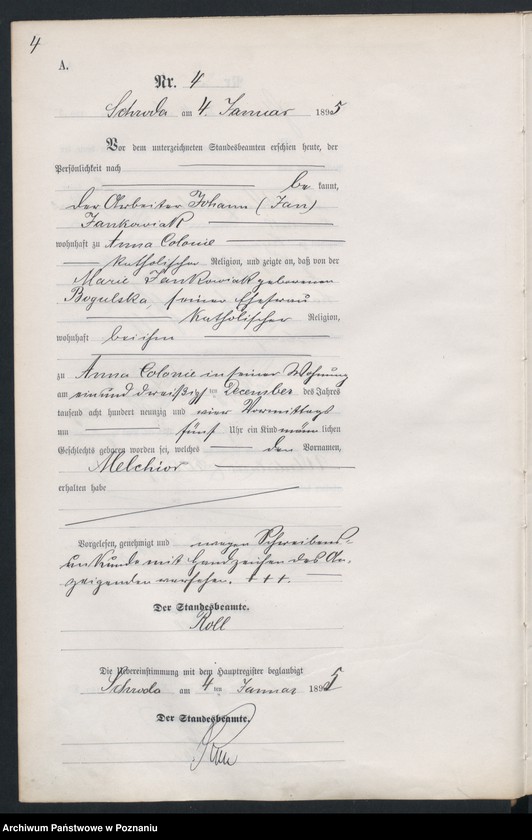 4
A.
Nr. 4
Schroda am 4. Januar 1895
Vor dem unterzeichneten Standesbeamten erschien heute, der
Persönlichkeit nach
be kannt,
der Arbeiter Johann (Jan)
Jankowiak
wohnhaft zu Anna Colonie
katholischer Religion, und zeigte an, daß von der
Marie Jankowiak geborenen
Bogulska, seiner Ehefrau
katholischer Religion,
wohnhaft bei ihm
zu Anna Colonie in seiner Wohnung
am ein und dreißigsten December des Jahres
tausend acht hundert neunzig und vier Vormittags
um fünf Uhr ein Kind männlichen
Geschlechts geboren worden sei, welches den Vornamen,
Melchior
erhalten habe
Vorgelesen, genehmigt und wegen Schreibens-
unkunde mit Handzeichen des An-
zeigenden versehen. + + +.
Der Standesbeamte.
Roll
Die Uebereinstimmung mit dem Hauptregister beglaubigt
Schroda am 4ten Januar 1895
Der Standesbeamte.
Archiwum Państwowe w Poznaniu